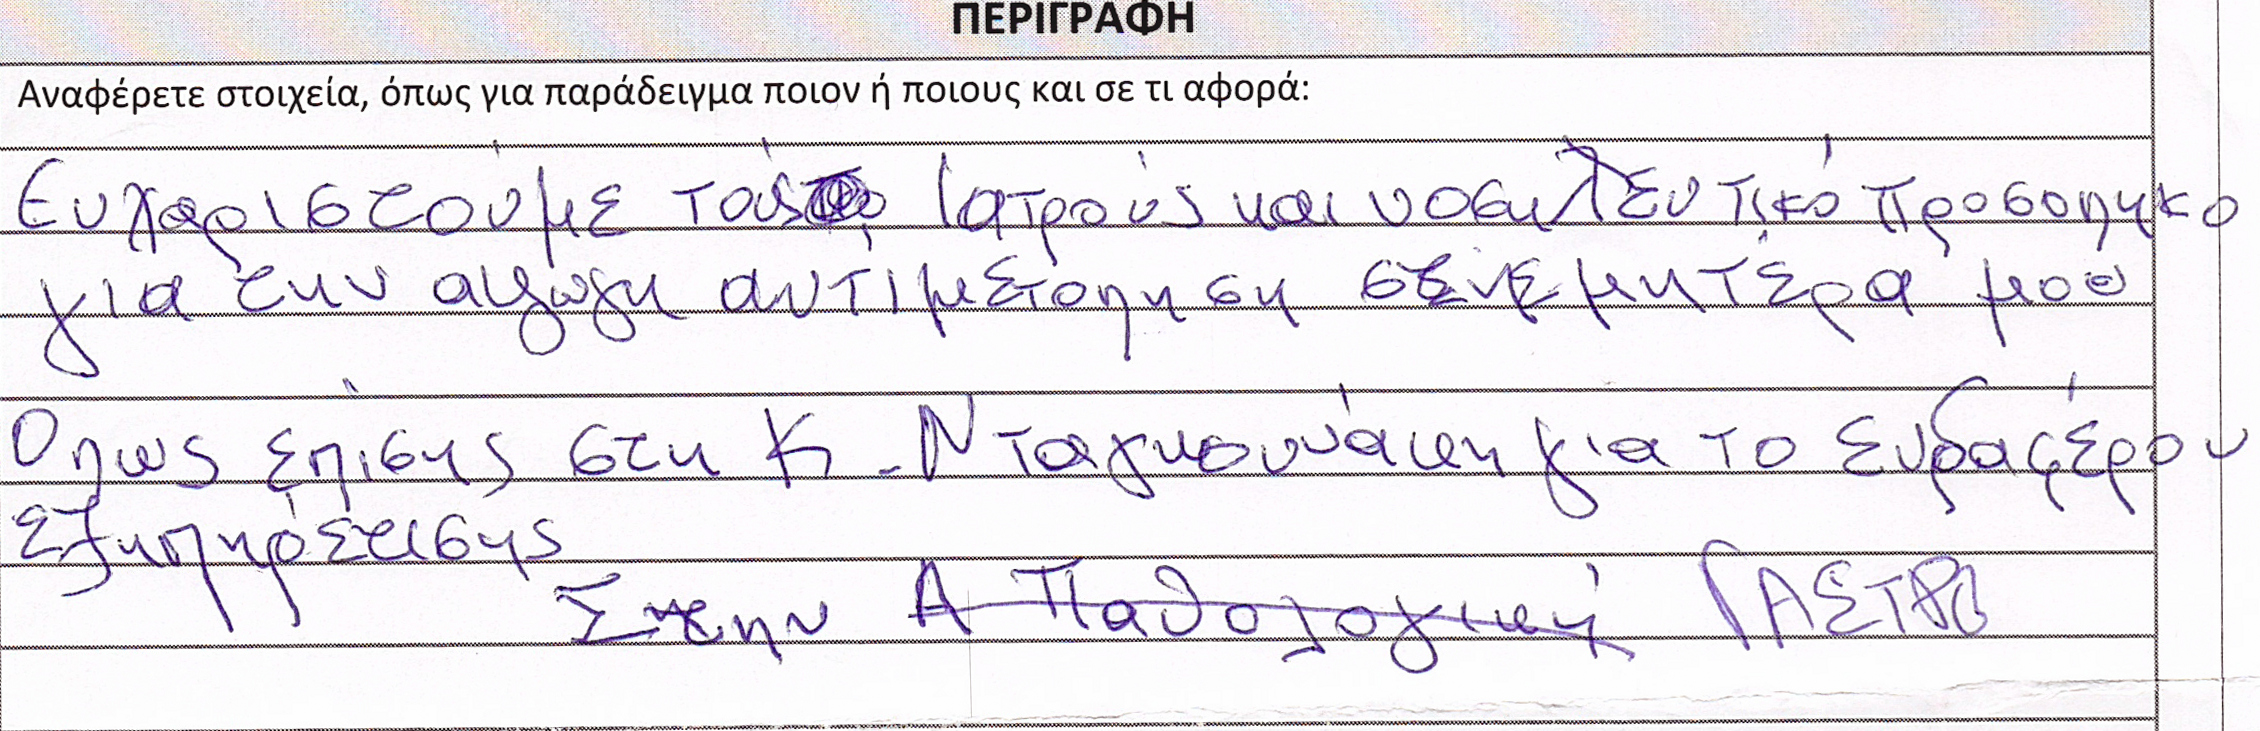 ΠΕΡΙΓΡΑΦΗ
Αναφέρετε στοιχεία, όπως για παράδειγμα ποιον ή ποιους και σε τι αφορά:
Ευχαριστούμε τούς Ιατρούς και νοσηλευτικό προσοπηκο
για την αψωγη αντιμετοπηση μητέρα μου
Οπως επίσης στη Κ. Νταγκουνάκη για το ενδαφέρον
εξηπηρέτισης
Στην Α Παθολογική ΓΑΣΤΡΟ